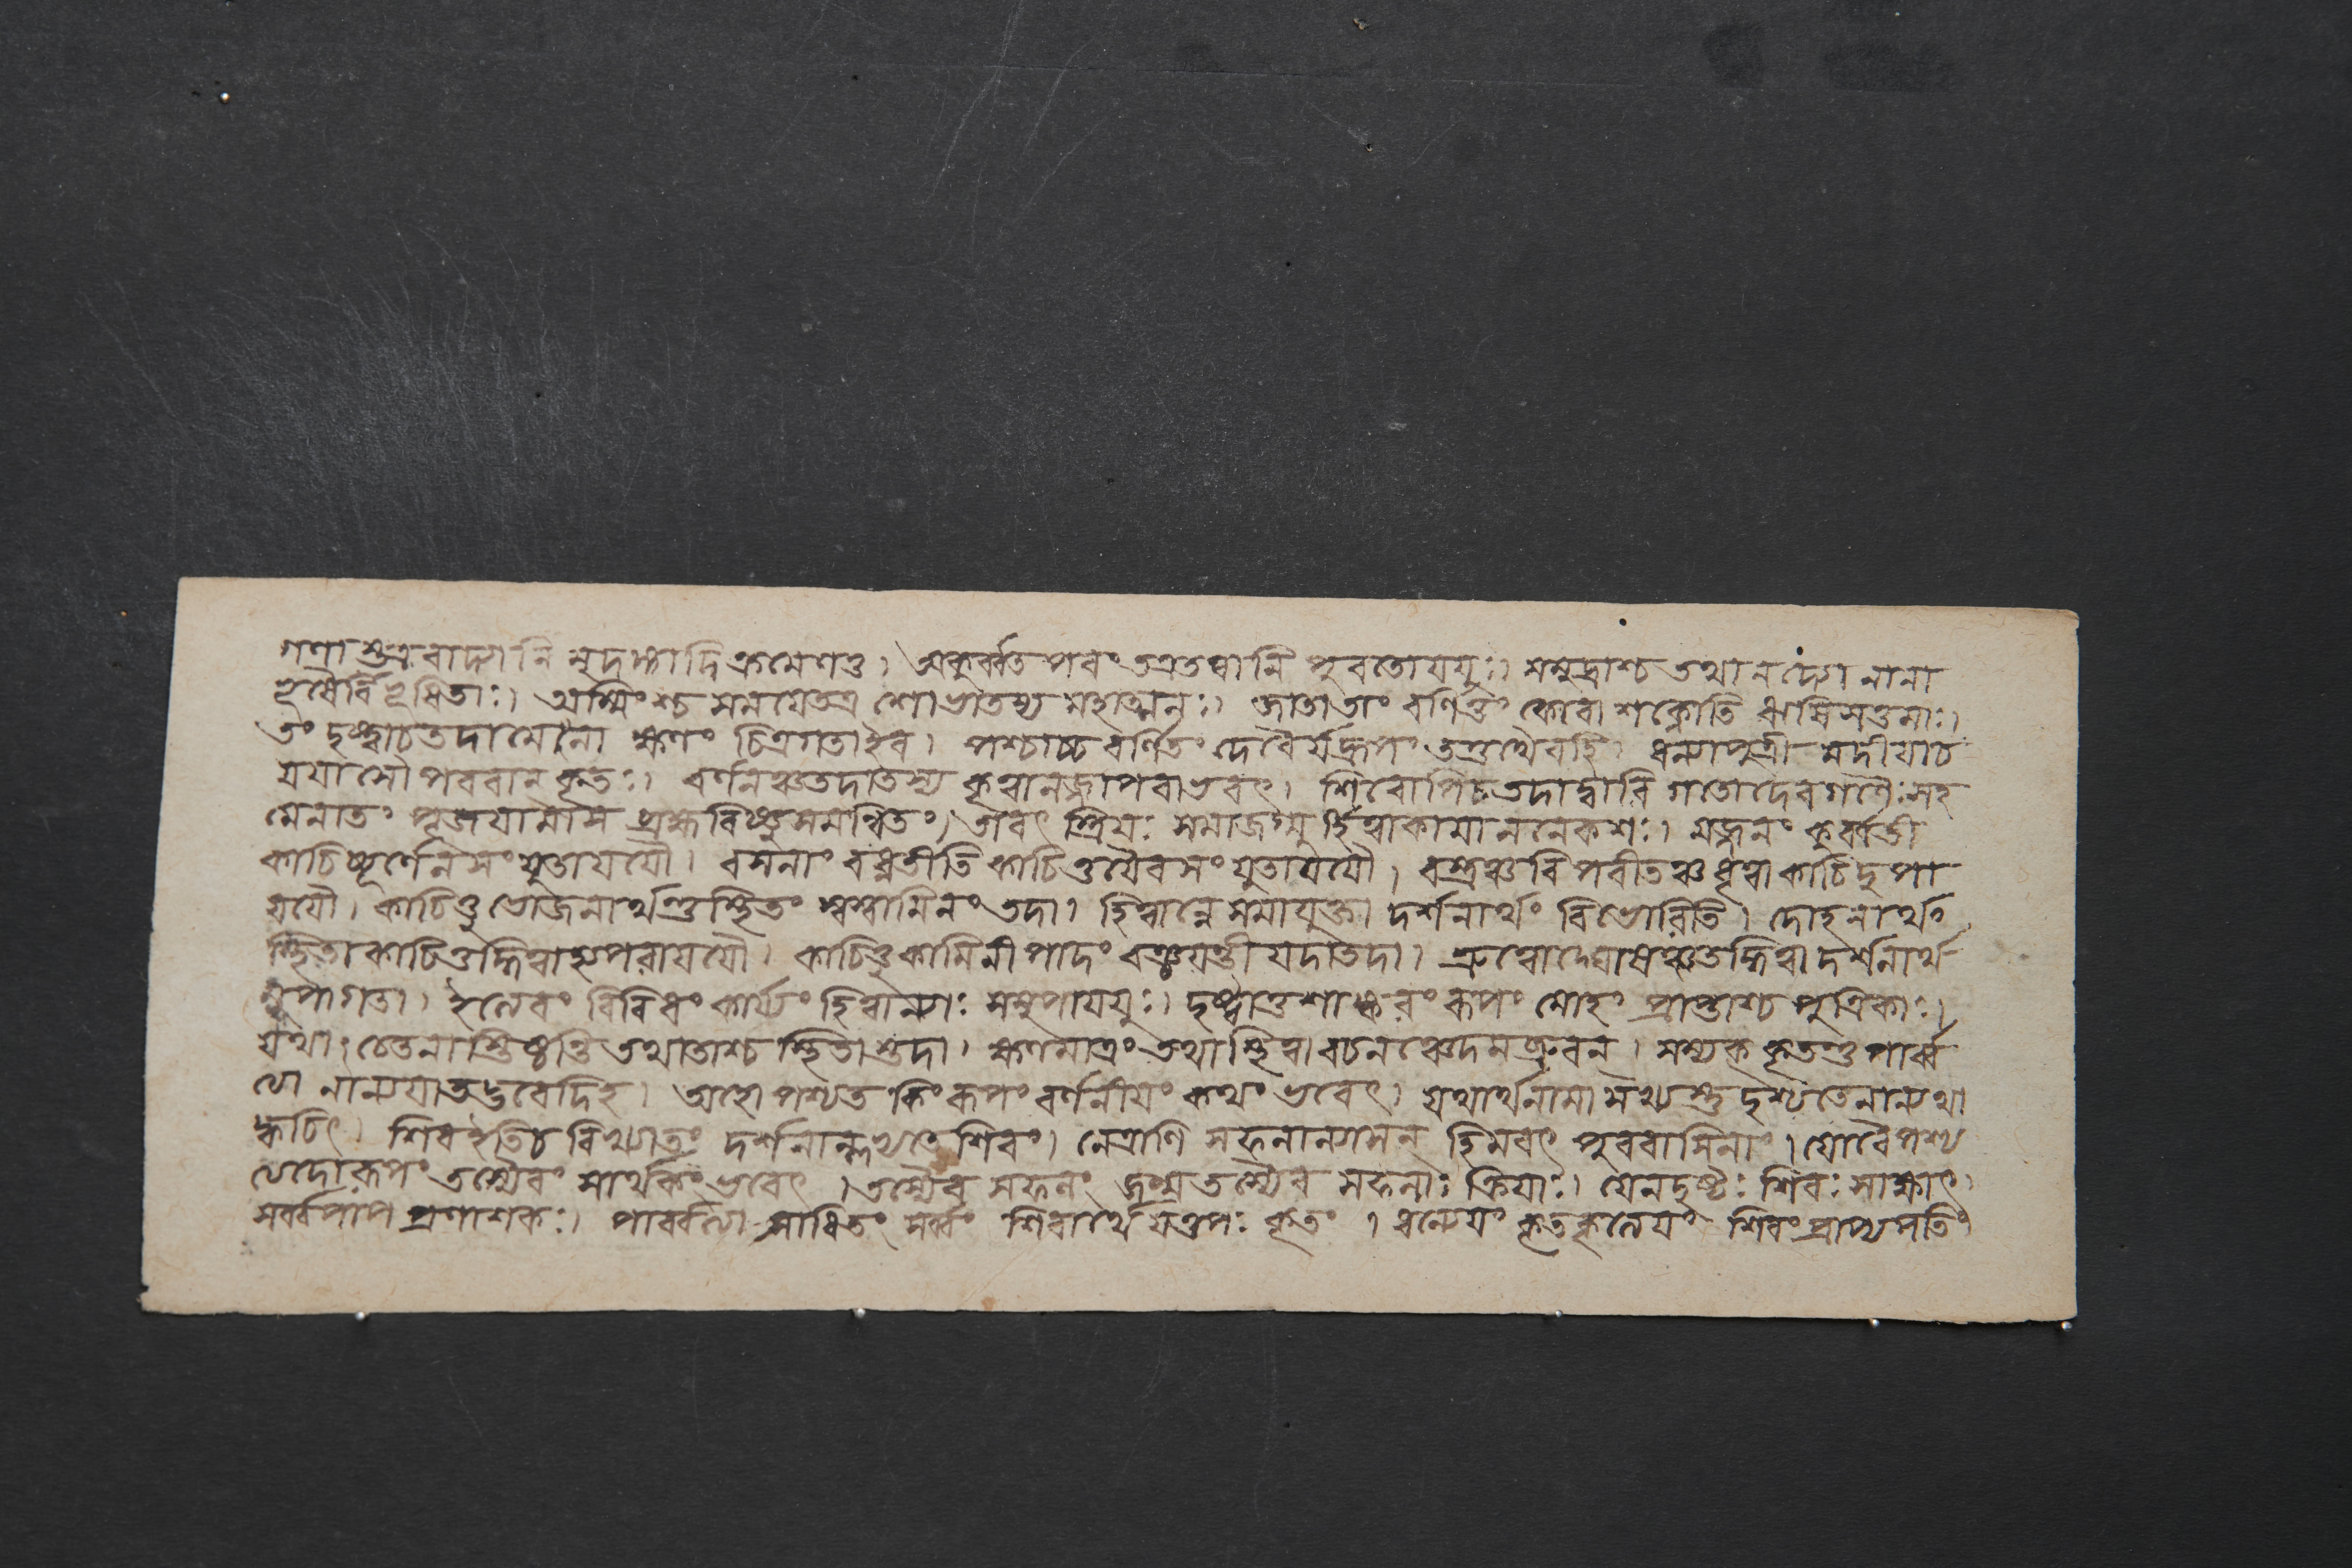 গন্ধাশ্চত্রবাদ্যানি মৃদঙ্গাদিক্রমেণতু। অকুর্ব্বত পরং তত্রতস্থানি পুরতোযযুঃ। সমুদ্রাশ্চ তথানদ্যো নানা
ভূষৈর্বিভূষিতাঃ। অস্মিংশ্চ সময়েতত্র শোভাতস্য মহাত্মনঃ। জাতাতাং বর্ণিতুং কোবা শক্নোতি ঋষিসত্তমাঃ।
তং দৃষ্ট্বাচতদামেনা ক্ষণং চিত্রগতাইব। পশ্চাচ্চ বর্ণিতং দেবৈর্যদ্রূপং তত্তথৈবহি। ধন্যাপুত্রী মদীয়াচ
যয়াসৌ পরবান কৃতঃ। বর্ণনঞ্চতদাতস্য কৃত্বানন্দপরাভবৎ। শিবোপিচতদাদ্বারি গতোদেবগণৈঃসহ
মেনাতং পূজয়ামাস ব্রহ্মবিষ্ণুসমন্বিতং। তাবৎ স্ত্রিয়ঃ সমাজগ্মু র্হিত্বাকামাননেকশঃ। মজ্জনং কুর্ব্বতী
কাচিচ্চূর্ণেনসংযুতাযযৌ। বসনাং বধ্নতীতি কাচিত্তথৈবসংযুতাযযৌ। বস্ত্রঞ্চবিপরীতঞ্চধৃত্বা কাচিদুপা
যযৌ। কাচিত্তু ভোজনার্থন্তুস্থিতং স্বস্বামিনং তদা। হিত্বান্নে সমাযুক্তা দর্শনার্থং বিভোরিতি। দোহনার্থং
স্থিতা কাচিত্তদ্ধিত্বাহ্যপরাযযৌ। কাচিত্তুকামিনী পাদং রঞ্জয়ন্তী যদাতদা। শ্রুত্বোদ্ঘোষঞ্চতদ্ধিত্বা দর্শনার্থ
মুপাগতা। ইত্যেবং বিবিধং কার্য্যং হিত্বান্যাঃ সমুপাযযুঃ। দৃষ্ট্বাতুশাঙ্করং রূপং মোহং প্রাপ্তাশ্চ পুত্রিকাঃ।
যথা চেতনাস্তিষ্ঠন্তি তথাতাশ্চ স্থিতাস্তদা। ক্ষণমাত্রং তথাস্থিত্বা বচনঞ্চেদমব্রুবন। সম্যক কৃতন্তু পার্ব্ব
ত্যা নান্যয়াতদ্ভবেদিহ। অহো পশ্যত কিং রূপং বর্ণনীয়ং কথং ভবেৎ। যথার্থনামা মখ্যস্তু দৃশ্যতেনান্যথা
ক্বচিৎ। শিবইতিচ বিখ্যাতং দর্শনাল্লভতে শিবং। নেত্রাণি সফলান্যাসন্ হিমবৎ পুরবাসিনাং। যোবৈপশ্য
ত্যদোরূপং তস্যৈবং সার্থকং ভবেৎ। তস্যৈব সফলং জন্ম তস্যৈব সফলাঃ ক্রিয়াঃ। যেনদৃষ্টঃ শিবঃ সাক্ষাৎ
সর্ব্বপাপ প্রণাশকঃ। পার্ব্বত্যা সাধিতং সর্ব্বং শিবার্থে যত্তপঃ কৃতং। ধন্যেয়ং কৃতকৃত্যেয়ং শিবংপ্রাপ্যপতিং